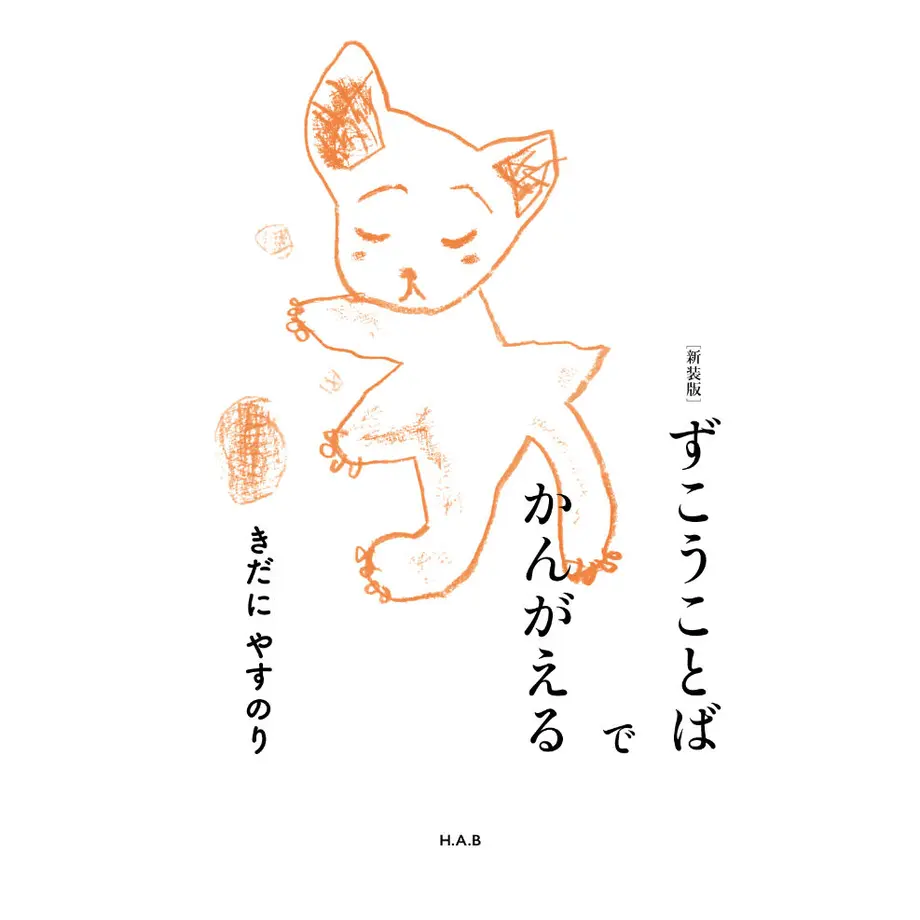 [新装版]
ずこうことば
で
かんがえる
きだに やすのり
H.A.B